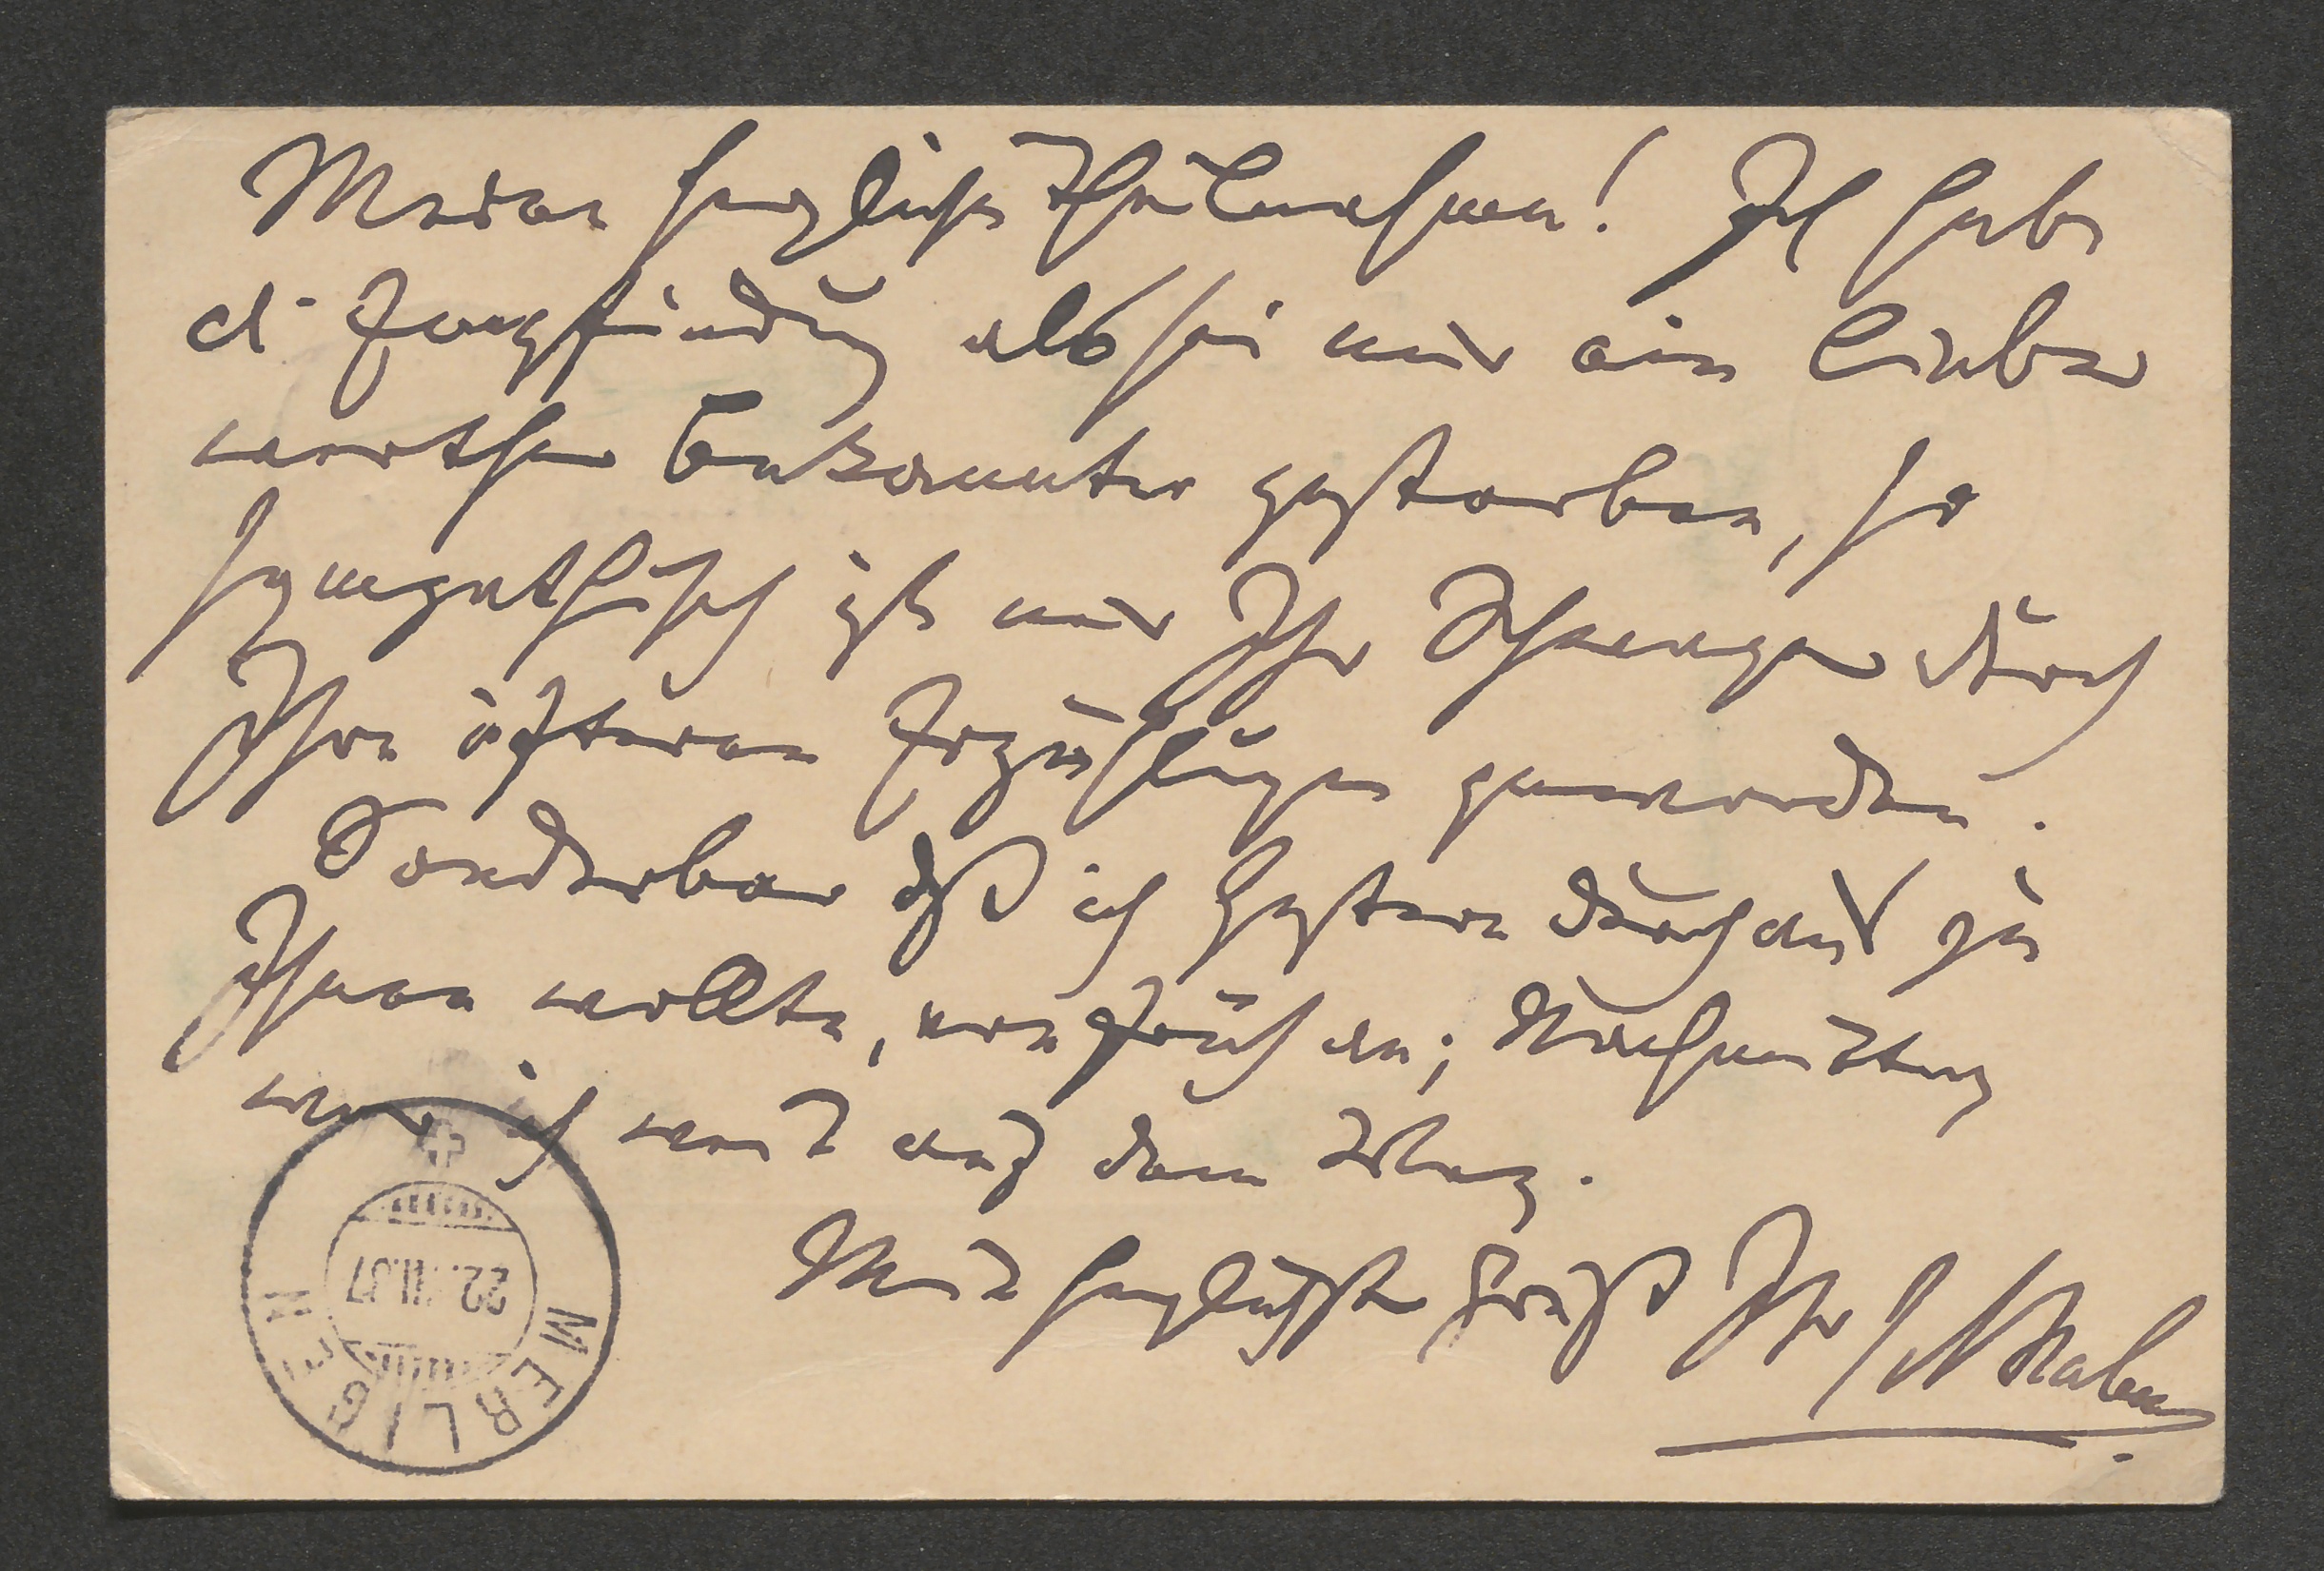 Meine herzlichste Theilnahme! Ich habe
d. Empfindung als sei mir ein lieber
werther Bekannter gestorben, so
sympathisch ist mir Ihr Schwager durch
Ihre öfteren Erzählungen geworden.
Sonderbar daß ich gestern durchaus zu
Ihnen wollte, von früh an; Nachmittag
war ich weit auf dem Weg.
Mit herzlichstem Gruß Ihr
MERLIGEN
22. II. 07